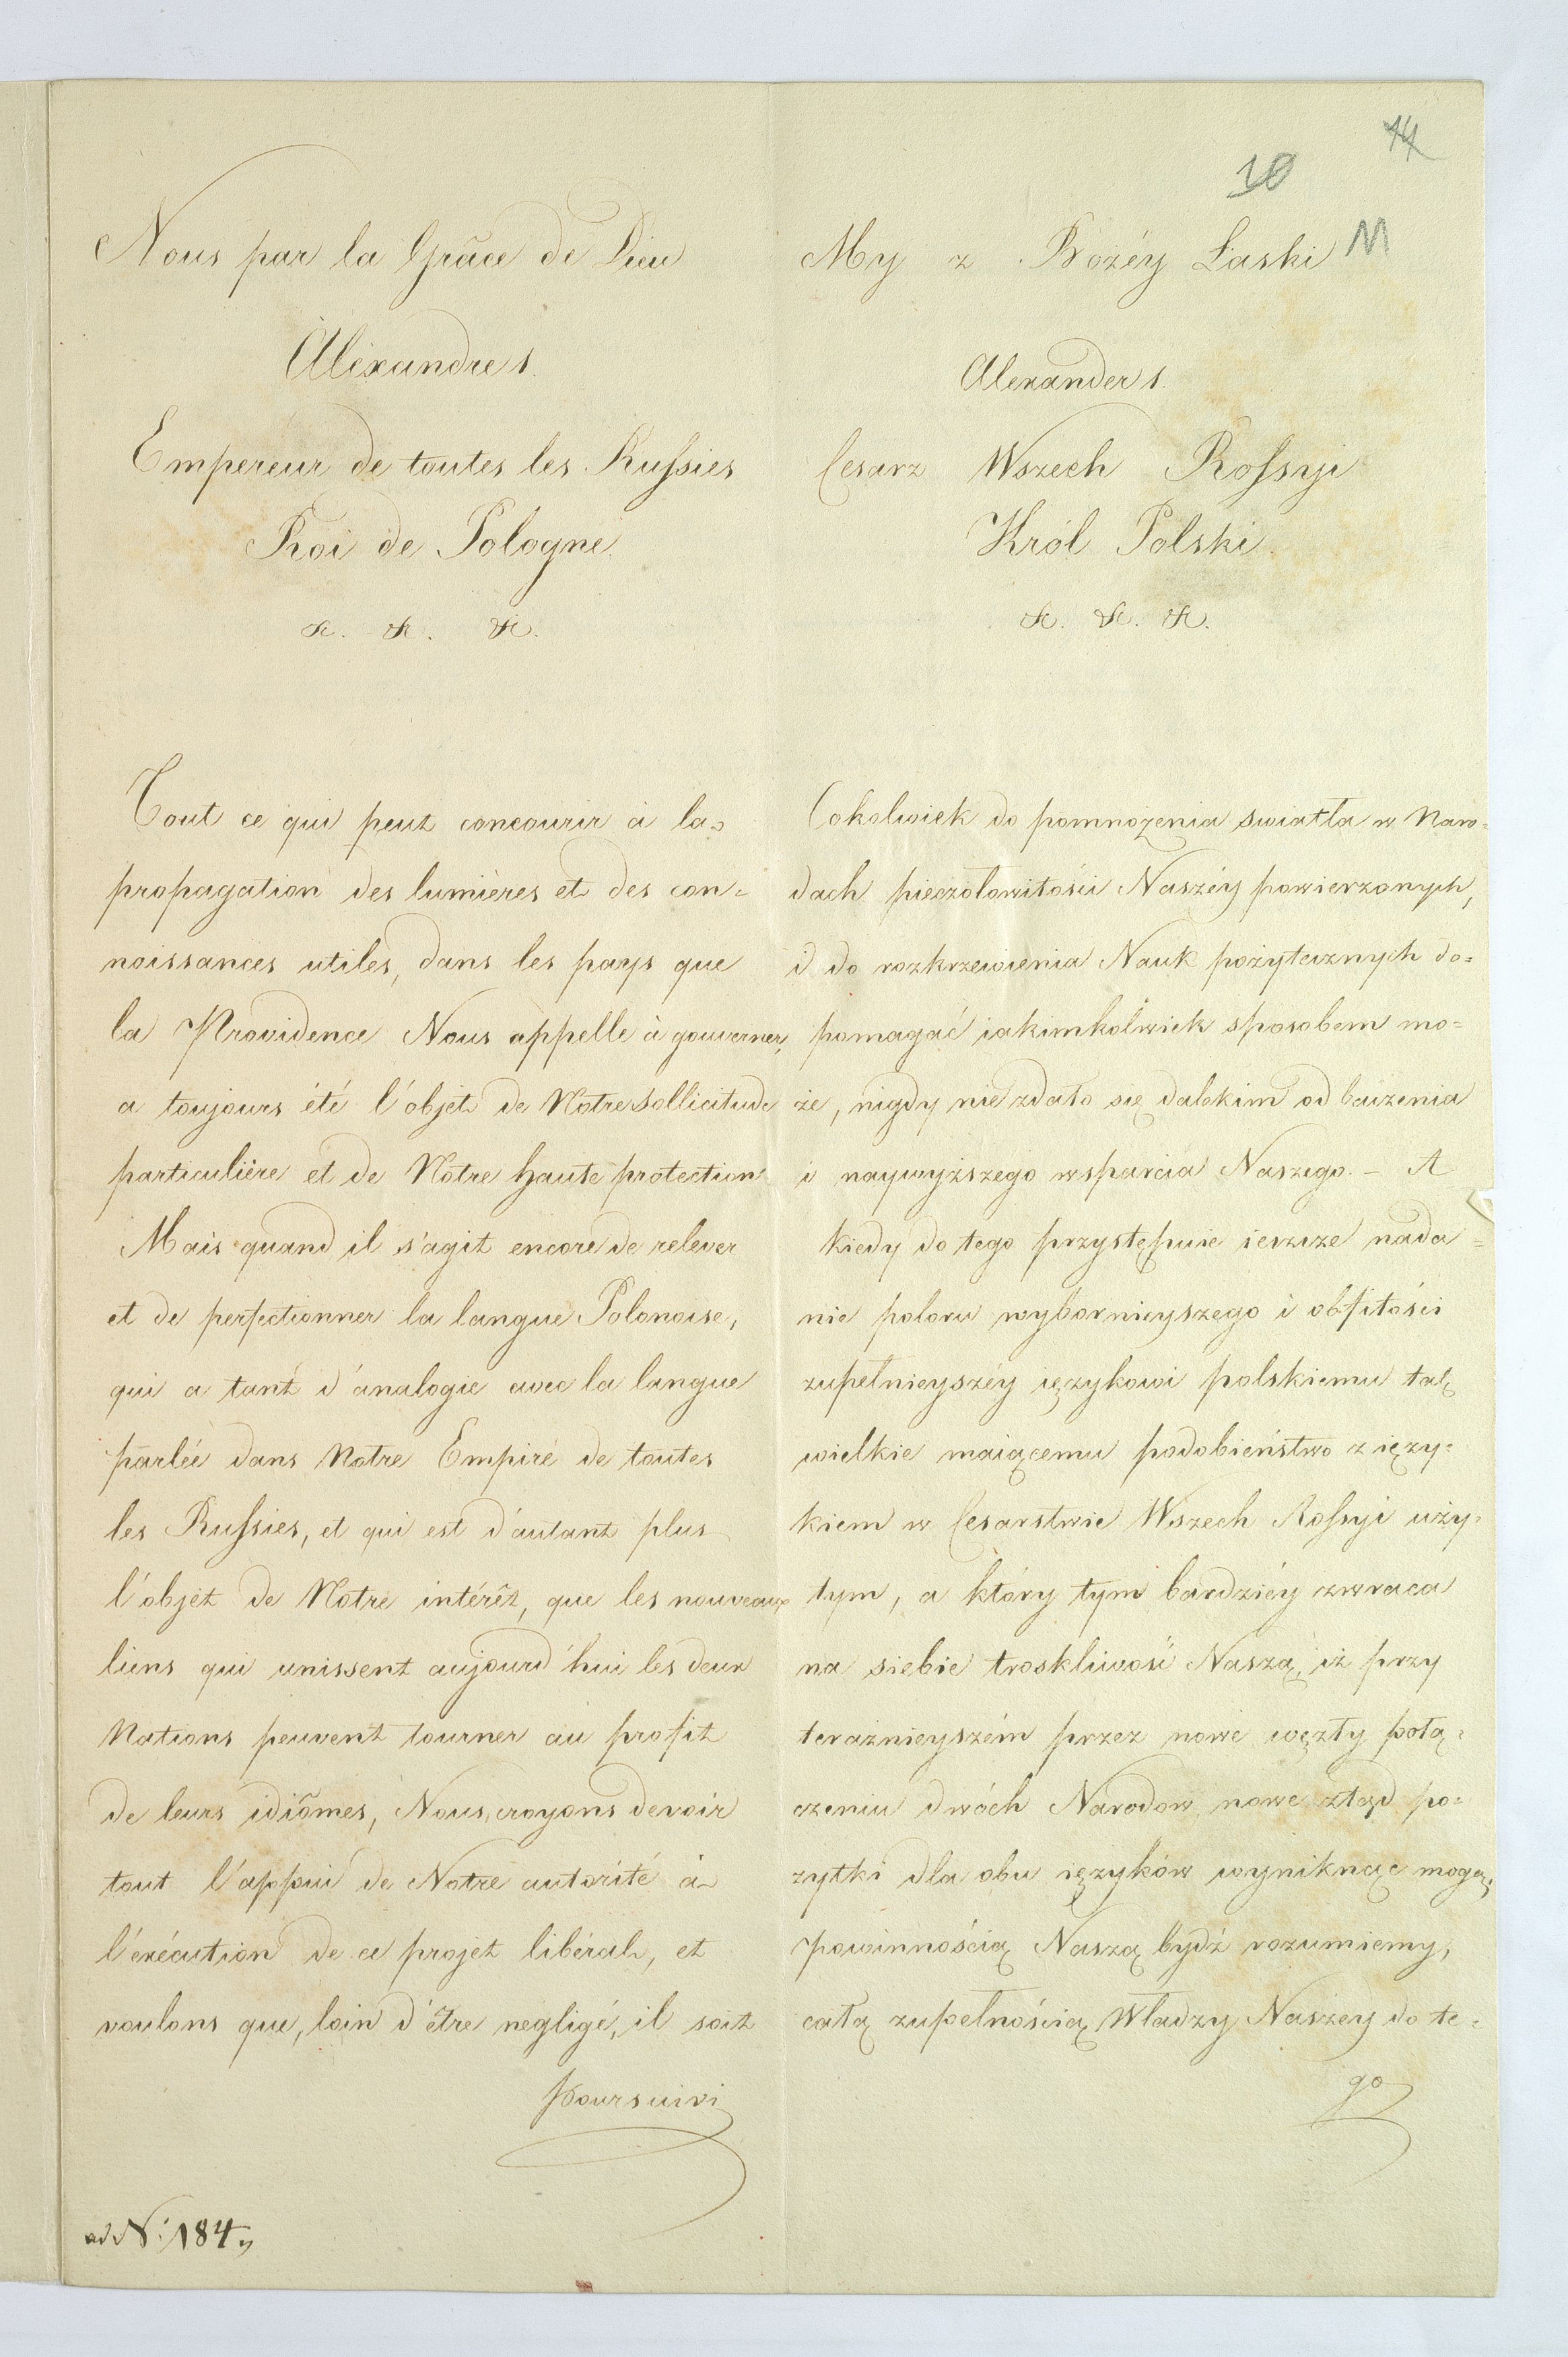 Nous par la Grâce de Dieu
Alexandre 1.
Empereur de toutes les Russies
Roi de Pologne
&c. &c. &c.
Tout ce qui peut concourir à la
propagation des lumières et des con=
noissances utiles, dans les pays que
la Providence Nous appelle à gouverner,
a toujours été l'objet de Notre sollicitude
particulière et de Notre haute protection
Mais quand il s'agit encore de relever
et de perfectionner la langue Polonoise,
qui a tant d'analogie avec la langue
parlée dans Notre Empire de toutes
les Russies, et qui est d'autant plus
l'objet de Notre intérêt, que les nouveaux
liens qui unissent aujourd'hui les deux
Nations peuvent tourner au profit
de leurs idiômes, Nous croyons devoir
tout l'appui de Notre autorité à
l'exécution de ce projet libéral, et
voulons que, loin d'être negligé, il soit
poursuivi
ad N: 184.
14
10
My z Bożéy Łaski M
Alexander 1.
Cesarz Wszech Rossyi
Król Polski
&c. &c. &c.
Cokolwiek do pomnożenia swiatła w Naro=
dach pieczołowitości Naszéy powierzonych,
i do rozkrzewienia Nauk pożytecznych do=
pomagać iakimkolwiek sposobem mo=
że, nigdy nie zdało się dalekim od baczenia
i naywyższego wsparcia Naszego. – A
kiedy do tego przystępuie ieszcze nada=
nie poloru wybornieyszego i obfitości
zupełnieyszéy ięzykowi polskiemu tak
wielkie maiącemu podobieństwo z ięzy=
kiem w Cesarstwie Wszech Rossyi uży=
tym, a który tym bardziéy zwraca
na siebie troskliwość Naszą, iż przy
teraźnieyszém przez nowe węzły połą=
czeniu dwóch Narodow, nowe ztąd po=
zytki dla obu ięzyków wyniknąć mogą,
powinnością Naszą bydź rozumiemy,
całą zupełnością Władzy Naszey do te=
go